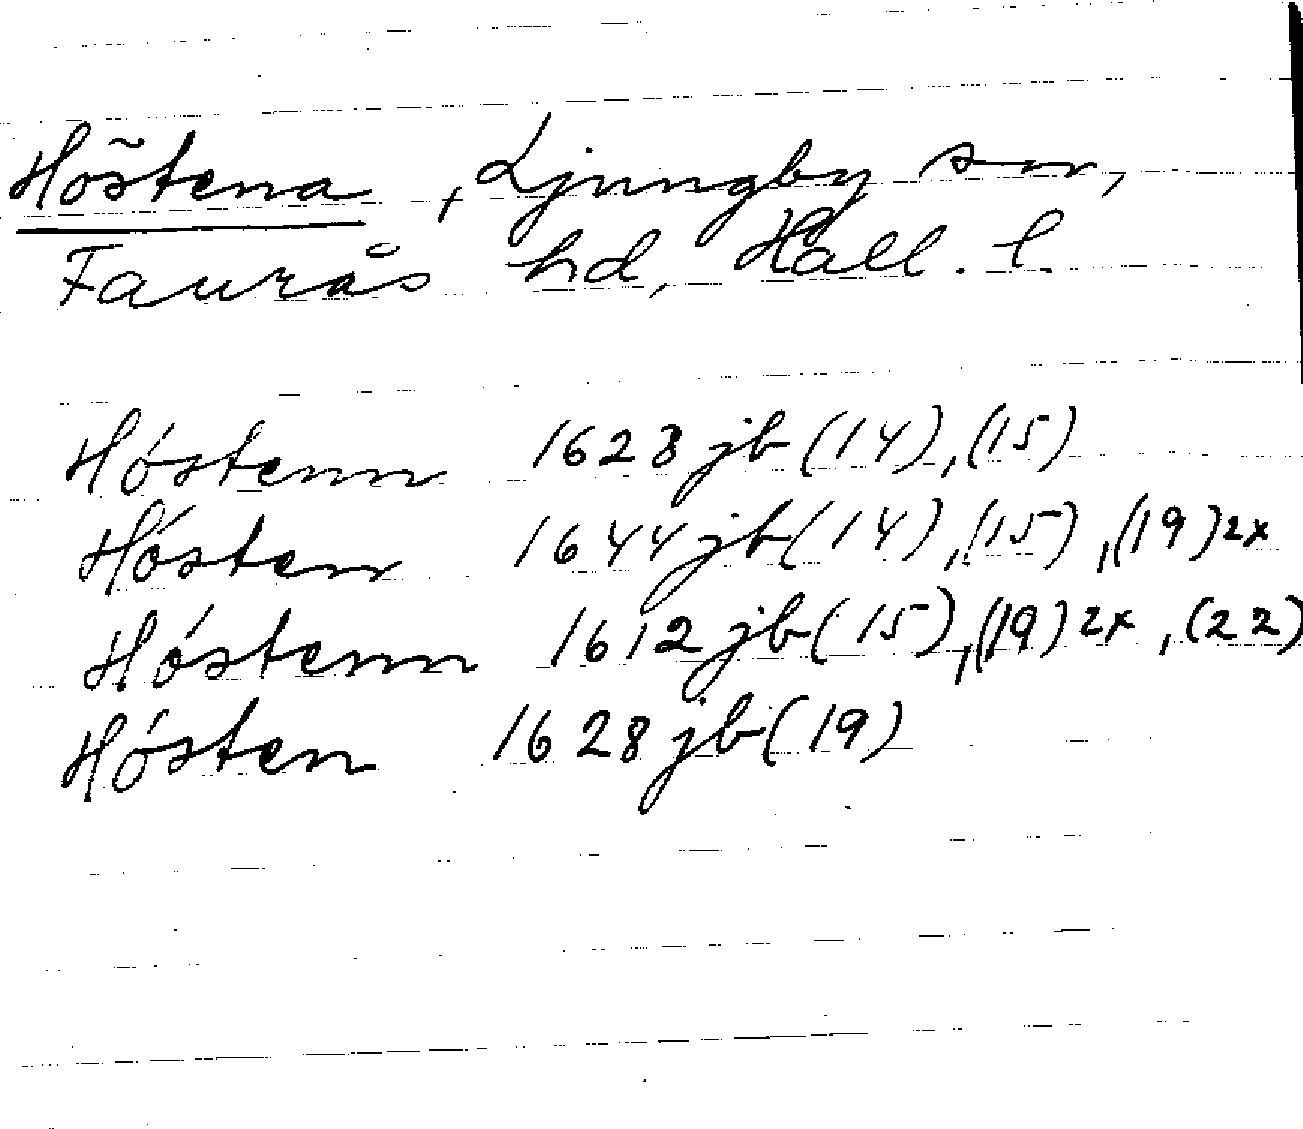 Höstena, Ljungby sn,
Faurås hd, Hall. l.
Hóstenn 1623 jb (14), (15)
Hósten 1644 jb (14), (15), (19) 2x
Hóstenn 1612 jb (15), (19) 2x, (22)
Hósten 1628 jb (19)